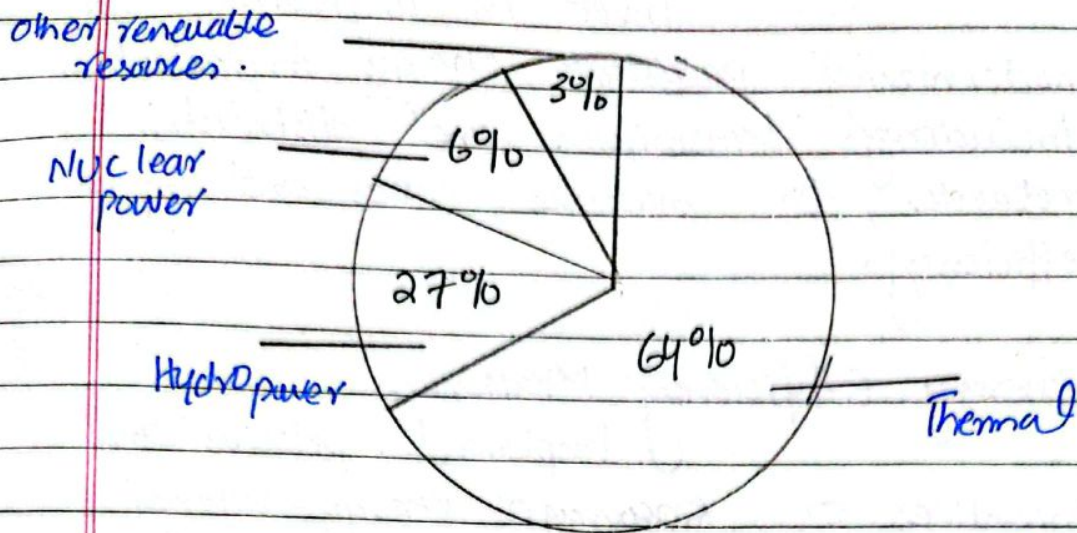 other renewable
resources.
3%
6%
Nuclear
power
27%
64%
Hydropower
Thermal